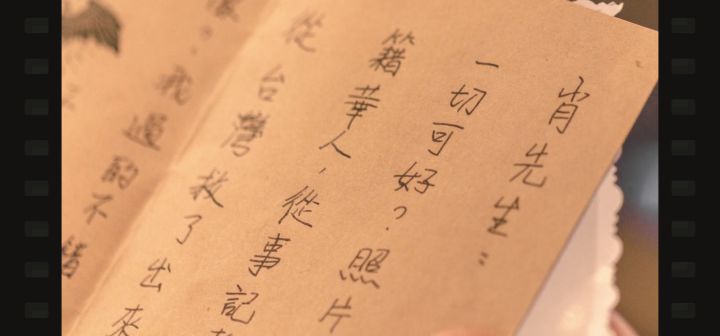 肖先生：
一切可好？照片
籍華人，從事記
從台灣救了出來
我過的不錯